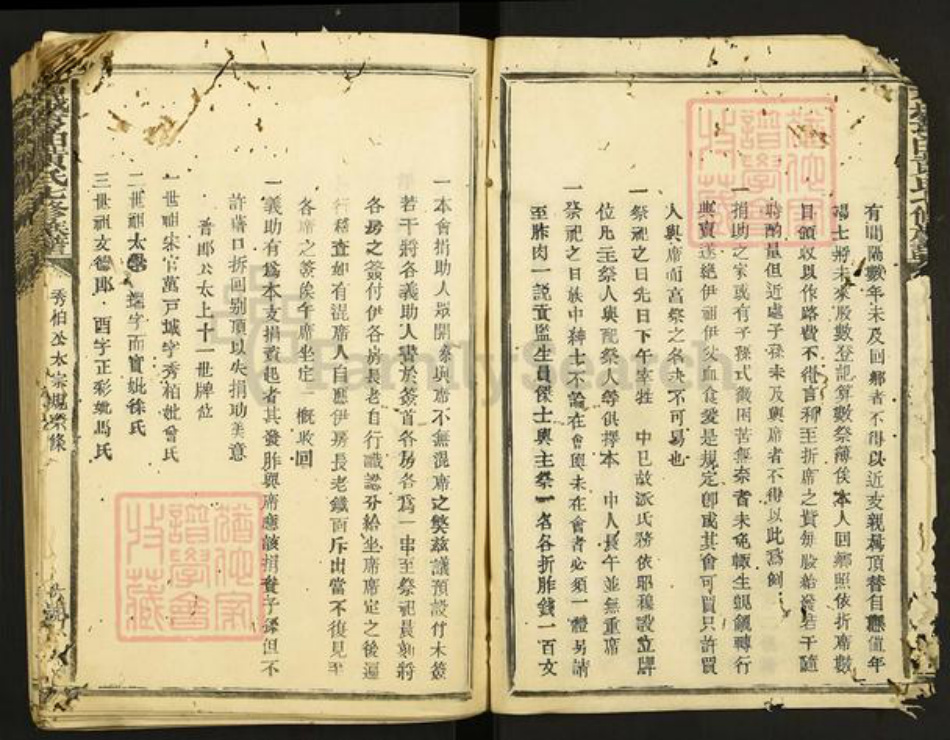 有間隔數年未及回鄉者不得以近支親為頂替自應值年
紳士將未來股數登記算數祭簿俟本人回鄉照依折席數
目領取以作路費不得言利至折席之貲每股給發若干隨
時酌量但近處子孫未及與席者不得以此為例
一捐助之家或有子孫式微困苦無奈者未免輒生覬覦轉行
典賣遂絕伊祖伊父血食爰是規定即或其會可買只許買
人與席而宮祭之名決不可易也
一祭祀之日先日下午宰牲 中巳故派氏務依昭穆設立牌
位凡主祭人與配祭人等俱擇本 中人長午並無重席
一祭祀之日族中紳士不論在會與未在會者必須一體另請
至胙肉一說貢監生員傑士與主祭一名各折胙錢一百文
一本會捐助人眾開祭與席不無混席之弊茲議預設竹木簽
若干將各義助人書於簽首各房各為一串至祭祀晨刻將
各房之簽付伊各房長老自行識認分給坐席席定之後逼
行稽查如有混席人自應伊房長老鐵面斥出當不復見至
各席之簽俟午席坐定一概收回
一義助有為本支捐貲起者其發胙與席應該捐貲子孫但不
許藉口拆回別頂以失捐助美意
普郎公太上十一世牌位
一世祖榮官萬戶城字秀柏妣曾氏
二世祖太學 鐸字而寶妣徐氏
三世祖文德郎 酉字正彩妣馬氏
秀柏公太宗規祭條
氏七修族譜
譜學會
收藏
FamilySearch